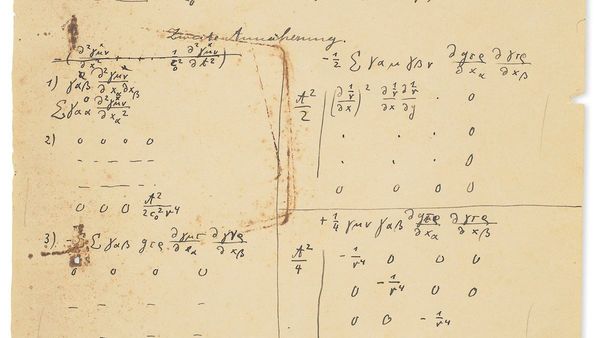 Zweite Annäherung.
−(∂²γ*μν/∂x² + . + . − 1/c₀² ∂²γ*μν/∂t²)
1) γαβ ∂²γμν/∂xα∂xβ
Σγαα ∂²γμν/∂xα²
2) 0 0 0 0
— — — —
— — — —
0 0 0 A²/2c₀²r⁴
3) −ΣΣ γαβ gτρ ∂γμτ/∂xα ∂γνρ/∂xβ
0 0 0 0
— — — —
−½ Σ γαμ γβν ∂gτρ/∂xα ∂γτρ/∂xβ
A²/2 | (∂(1/r)/∂x)² ∂(1/r)/∂x ∂(1/r)/∂y . 0
. . . 0
. . . 0
0 0 0 0
+¼ γμν γαβ ∂gτρ/∂xα ∂γτρ/∂xβ
A²/4 | −1/r⁴ 0 0 0
0 −1/r⁴ 0 0
0 0 −1/r⁴